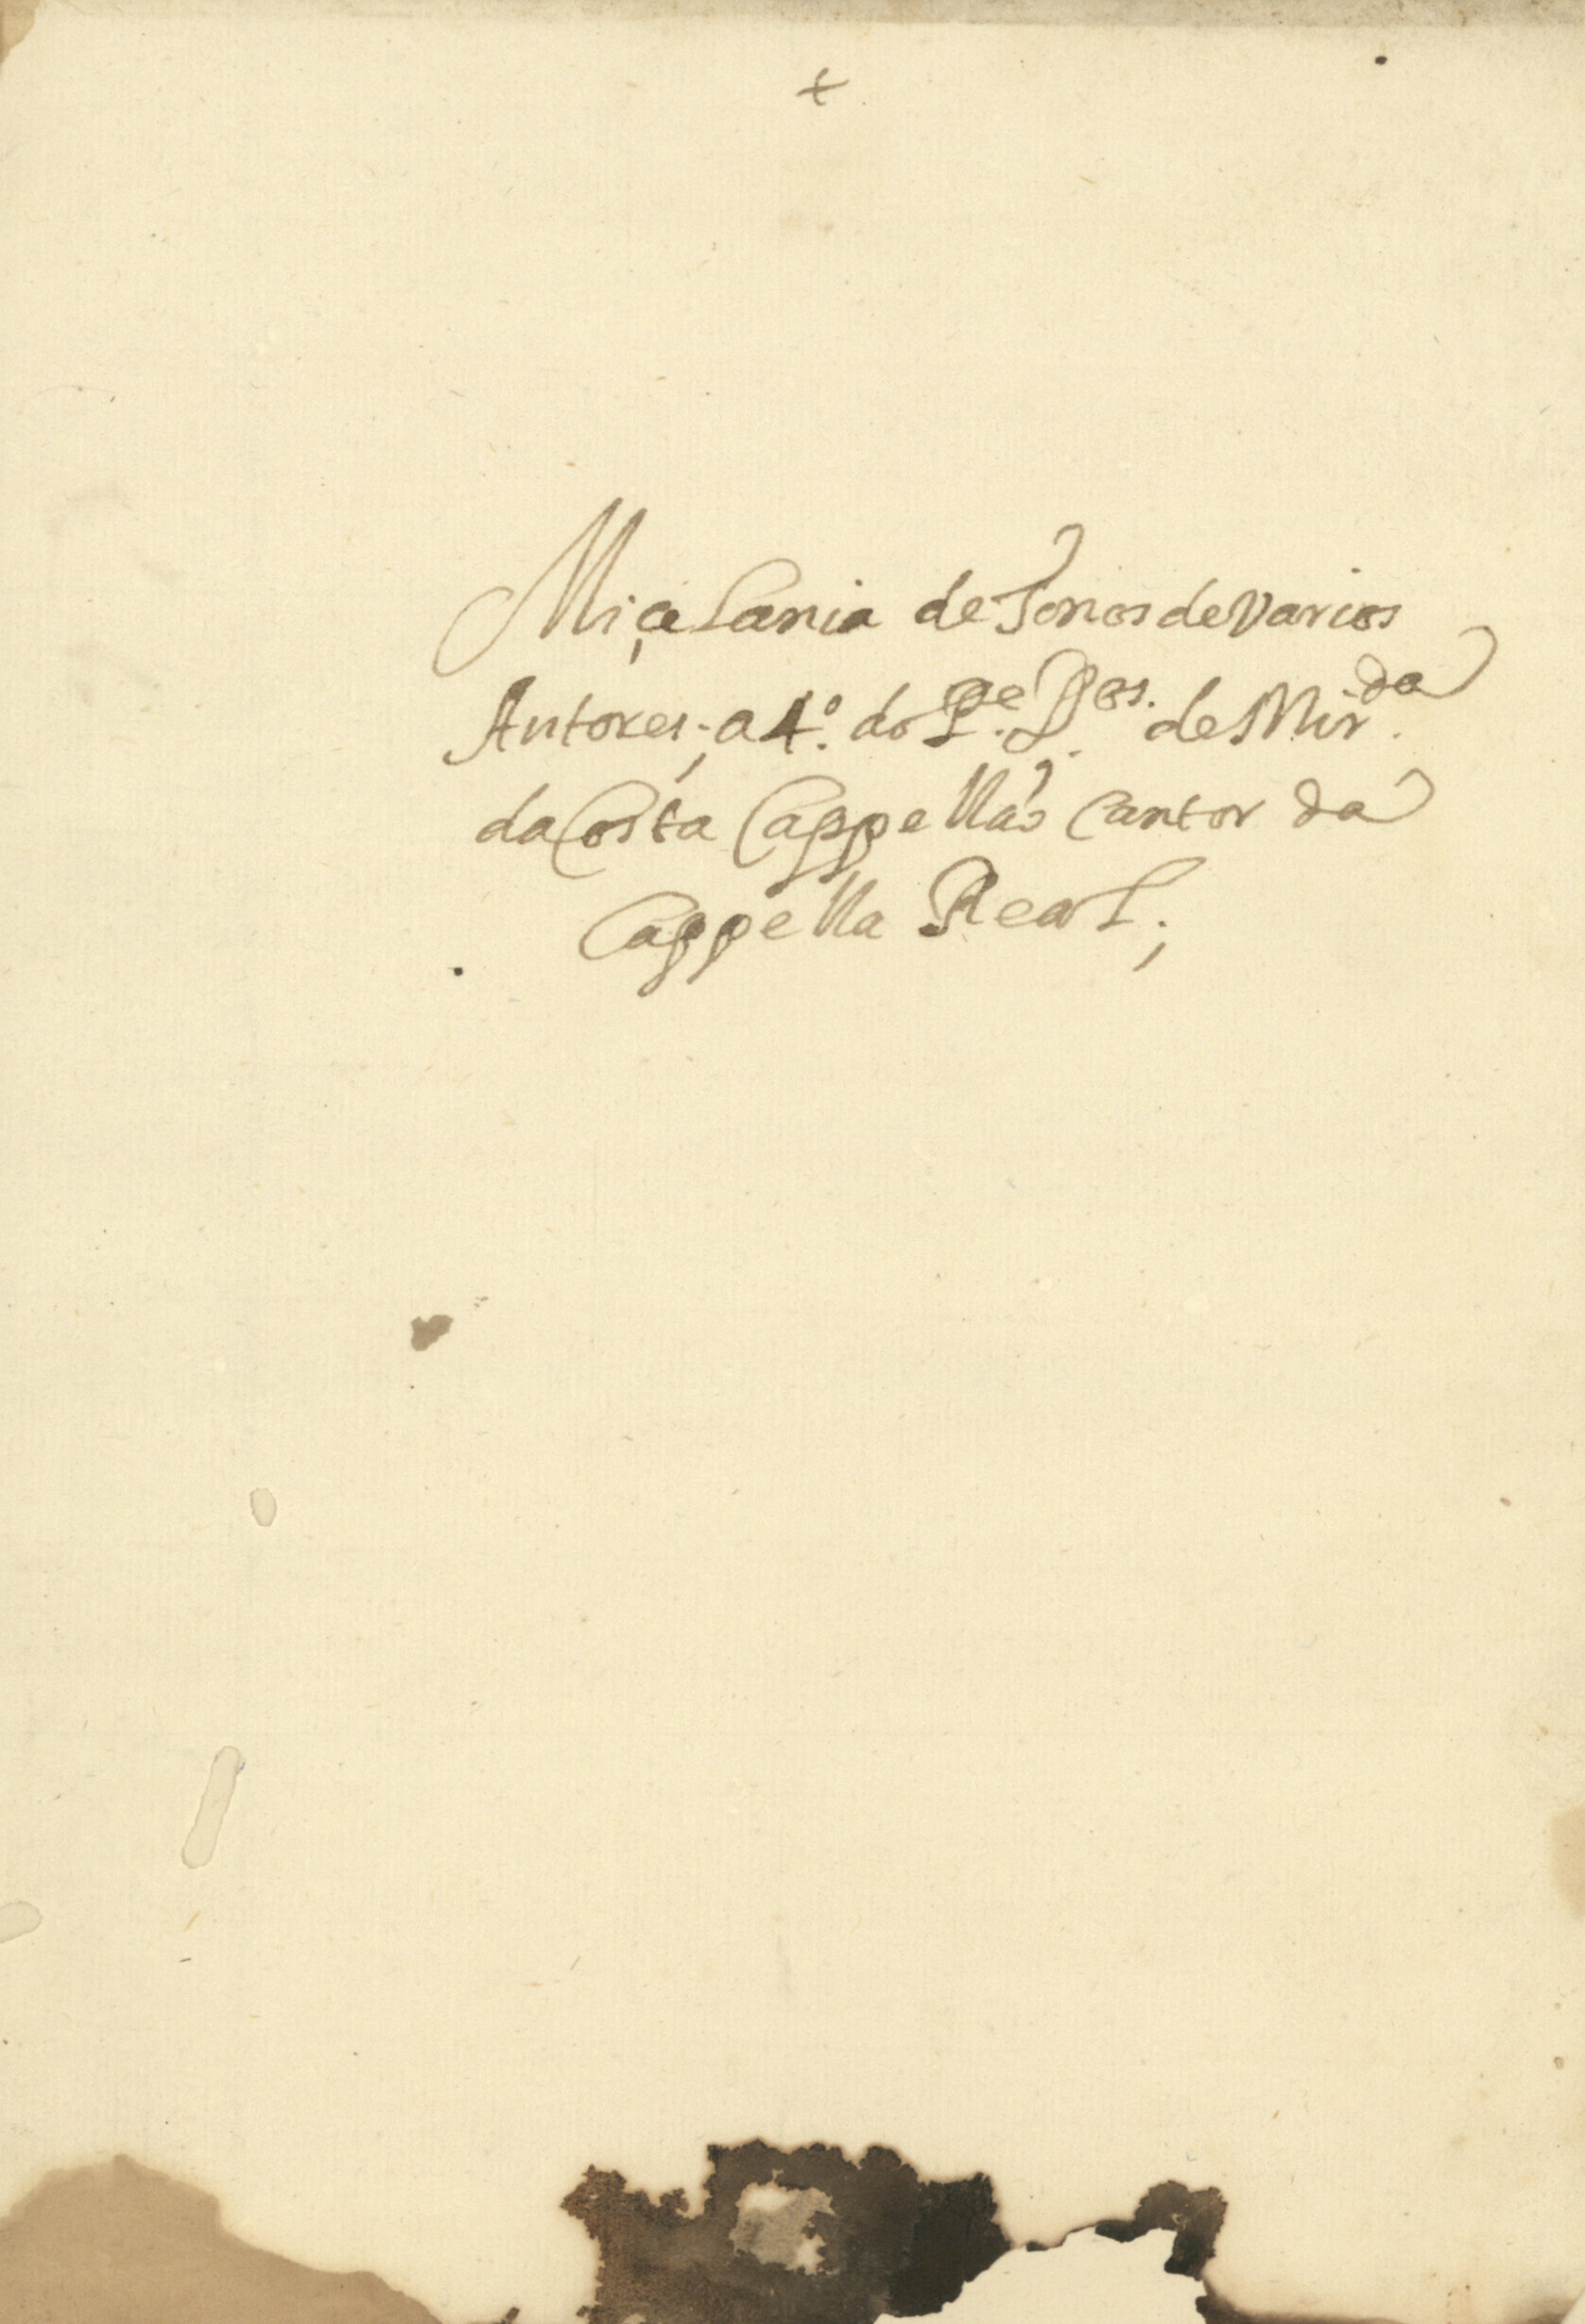 +
Miçelania de Tonos de Varios
Autores; a 4º. do Pe. Dos. de Mirda.
da Costa Cappellaõ Cantor da
Cappella Real;